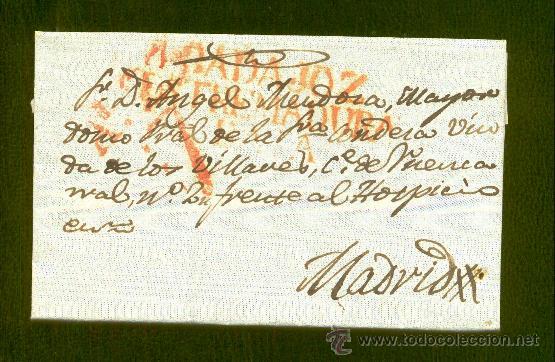 BADAJOZ
Sr. D. Angel Mendoza, Mayor
domo Gral de la Sra Condesa Viu
da de los Villares, Ce. de Fuenca
rral, no. frente al Hospicio
Madrid
www.todocoleccion.net